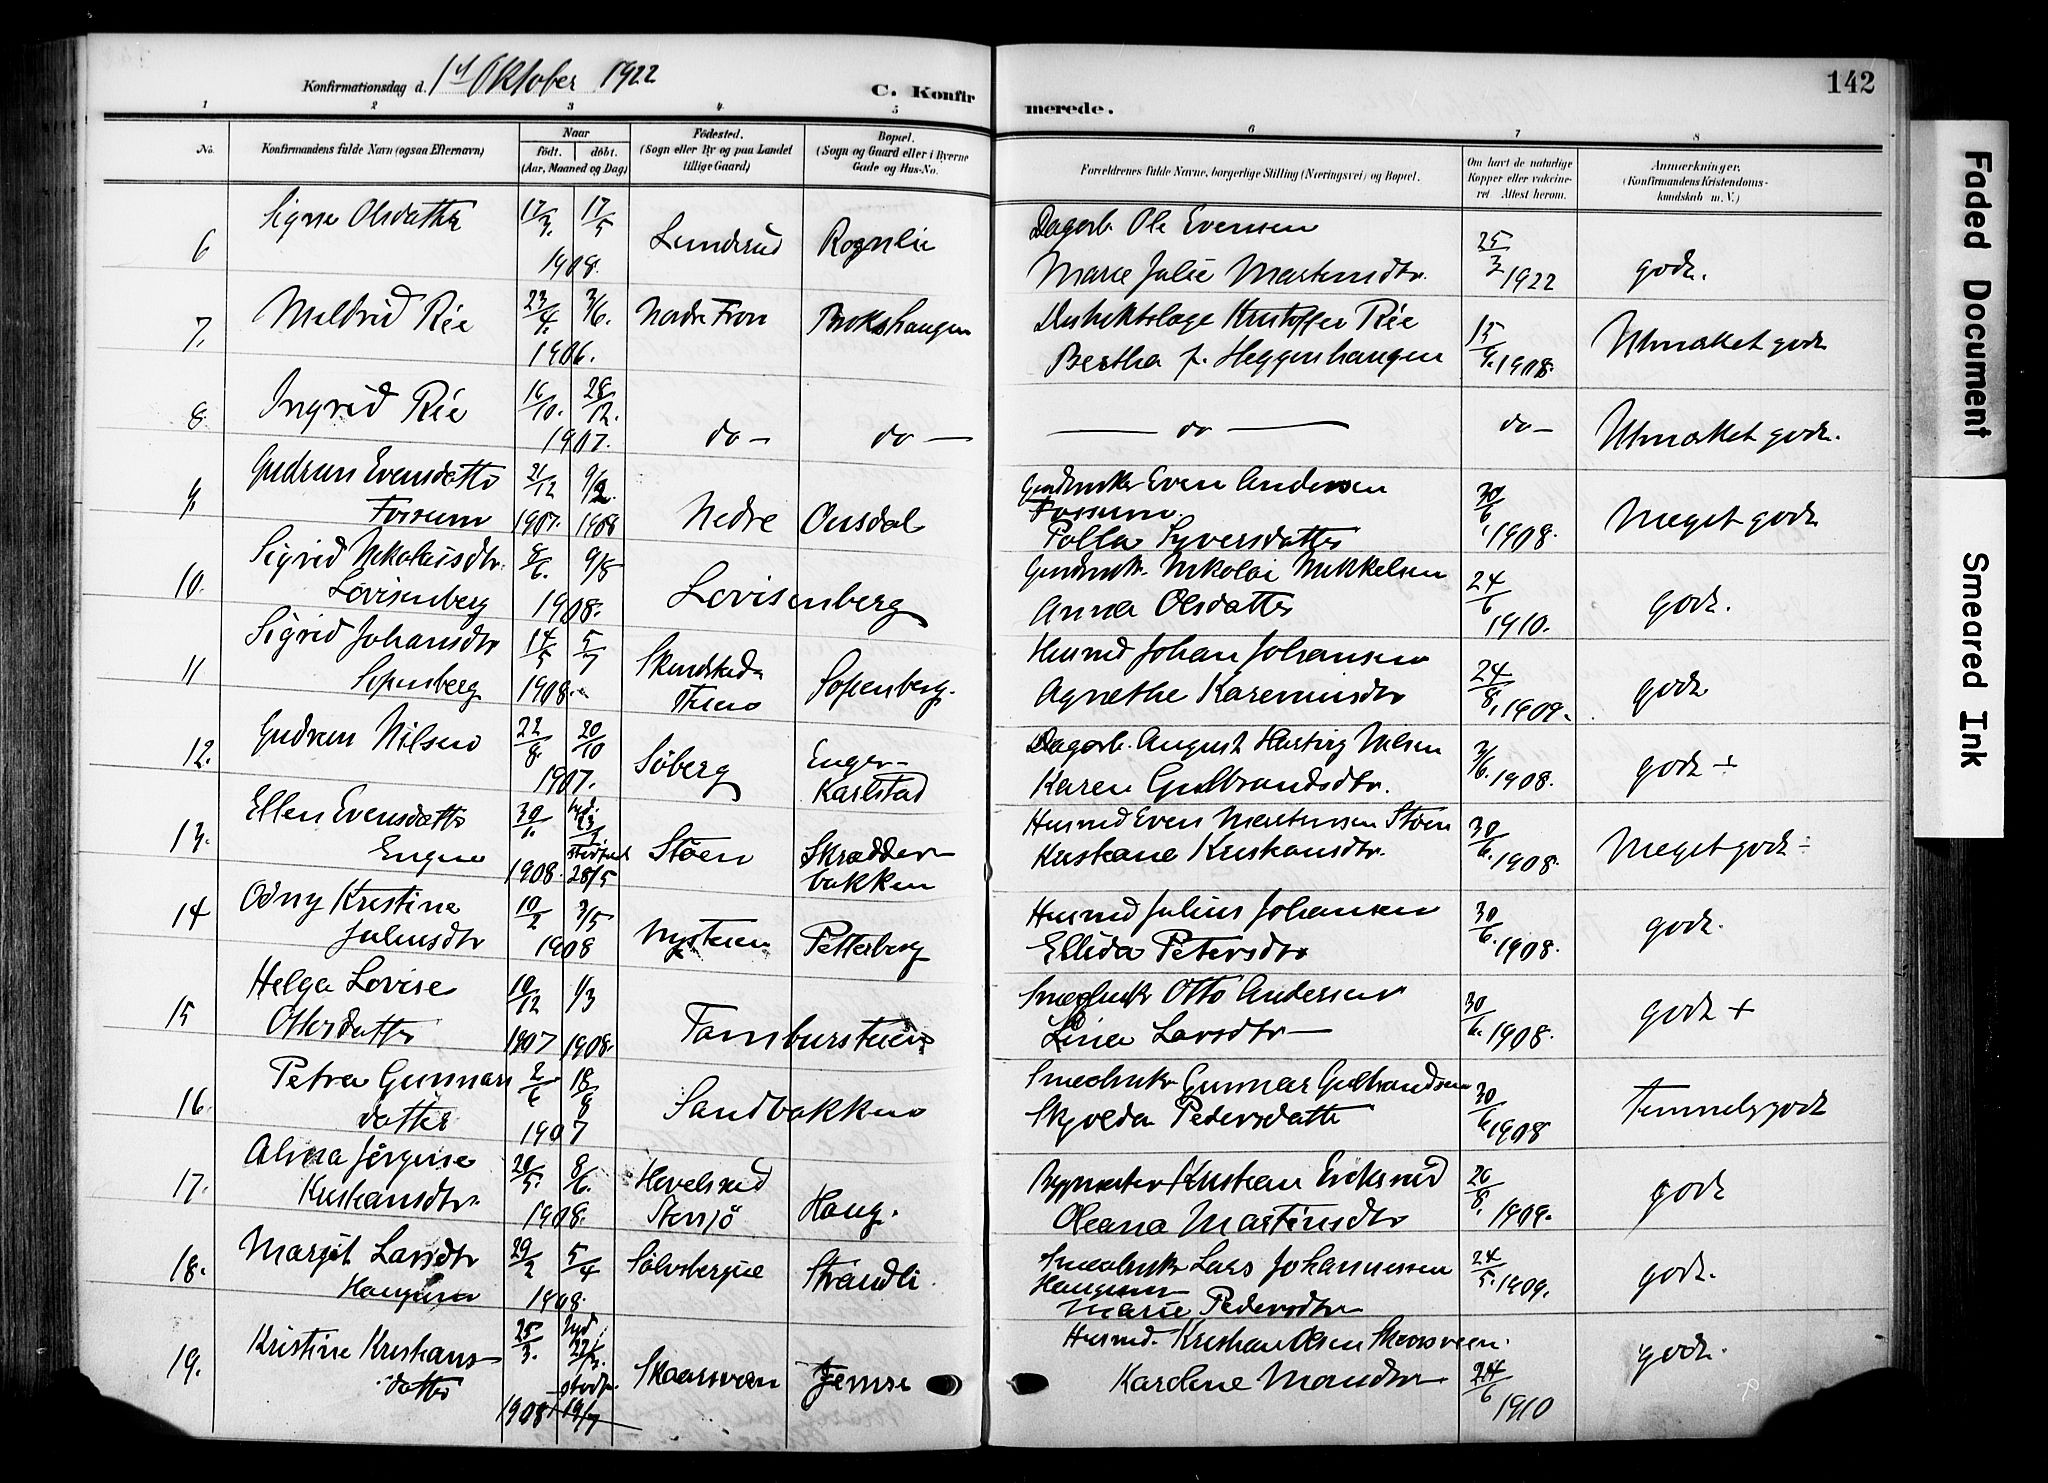 Konfirmationsdag d. 1st Oktober 1922
C. Konfirmerede.
142
1 2 3 4 5 6 7 8
No.
Konfirmandens fulde Navn (ogsaa Efternavn)
Naar
født. døbt.
(Aar, Maaned og Dag)
Fødested.
(Sogn eller By og paa Landet
tillige Gaard)
Bopæl.
(Sogn og Gaard eller i Byerne
Gade og Hus-No.
Forældrenes fulde Navne, borgerlige Stilling (Næringsvei) og Bopæl.
Om havt de naturlige
Kopper eller vakcine-
ret Attest herom.
Anmærkninger.
(Konfirmandens Kristendoms-
kundskab m. V.)
6 Signe Olsdatter 17/3. 17/5 1908. Lundsrud Rognlie
Dagarb. Ole Evensen
Marie Julie Martinsdtr. 25/3 1922 godt.
7. Meldrid Rée 23/4. 3/6. 1906. Nordre Fron Brokshaugen
Distriktslæge Kristoffer Rée
Bertha f. Heggenhaugen 15/9. 1908. Utmærket godt
8. Ingrid Rée 16/10. 28/12. 1907. do — do —
— do — do — Utmærket godt.
9. Gudrun Evensdatter
Fossum 21/12 1907. 9/2. 1908 Nedre Onsdal
Gaardbruker Even Andersen
Fossum.
Polla Syversdatter 30/6 1908. Meget godt
10. Sigrid Nikolaisdtr.
Lovisenberg 8/6. 9/8 1908. Lovisenberg
Gaardbruk. Nikolai Mikkelsen
Anna Olsdatter 24/6 1910. godt.
11 Sigrid Johansdtr
Sopenberg 14/5 5/7 1908. Sopenberg.
Husmd Johan Johansen
Agnethe Kareniusdtr 24/8, 1909. godt
12. Gudrun Nilsen 22/8. 20/10 1907. Søberg Enger-
Karlstad
Dagarb. August Hartvig Nilsen
Karen Gulbrandsdtr. 3/6. 1908. godt ÷
13. Ellen Evensdatter
Engen 30/1. 1908. 28/5 Støen Skrædder-
bakken
Husmd Even Martinsen Støen
Kristiane Kristiansdtr. 30/6. 1908. Meget godt ÷
14 Odny Kristine
Juliusdtr 10/2 3/5 1908 Nystuen Petterberg
Husmd Julius Johansen
Ellida Petersdtr 30/6. 1908. godt.
15 Helga Lovise
Ottersdatter 10/12 1907 1/3 1908. Tamburstuen
Smedbruk Otto Andersen
Lina Larsdtr — 30/6. 1908. godt +
16. Petra Gunnars
datter 2/6 18/8 1907 Sandbakken
Smedbruk Gunnar Gulbrandsen
Skjolda Pedersdatter 30/6 1908 Temmelig godt
17. Alvina Jørgine
Kristiansdtr. 20/5. 8/6. 1908. Hovelsrud
Stensjö Haug.
Bygmester Kristian Eriksrud
Oleana Martinsdtr 26/8. 1909. godt
18. Margit Larsdtr
Haugerud 29/2 5/4 1908. Sölvsbergie Strandli.
Smedbruk Lars Johannessen
Haugerud
Marie Pedersdtr 24/5. 1909. godt.
19. Kristine Kristians-
datter 25/3. 1908 19/7 Skaarsveen Jemse
Husmd. Kristian Olsen Skaarsveen.
Karoline Monsdtr 24/6 1910 godt.
Faded Document
Smeared Ink